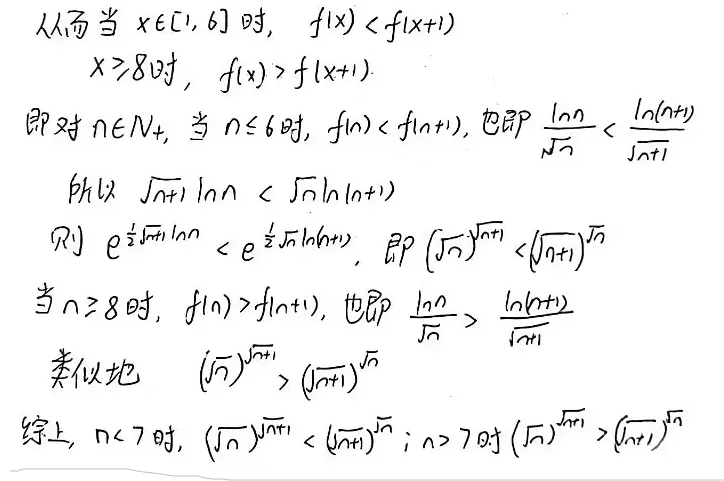 从而当 x∈[1, 6] 时, f(x) < f(x+1)
x≥8时, f(x) > f(x+1)
即对 n∈N+, 当 n≤6时, f(n) < f(n+1), 也即 ln n/√n < ln(n+1)/√(n+1)
所以 √(n+1) ln n < √n ln(n+1)
则 e^(½√(n+1) ln n) < e^(½√n ln(n+1)), 即 (√n)^√(n+1) < (√(n+1))^√n
当 n≥8时, f(n) > f(n+1), 也即 ln n/√n > ln(n+1)/√(n+1)
类似地 (√n)^√(n+1) > (√(n+1))^√n
综上, n<7时, (√n)^√(n+1) < (√(n+1))^√n ; n>7时 (√n)^√(n+1) > (√(n+1))^√n